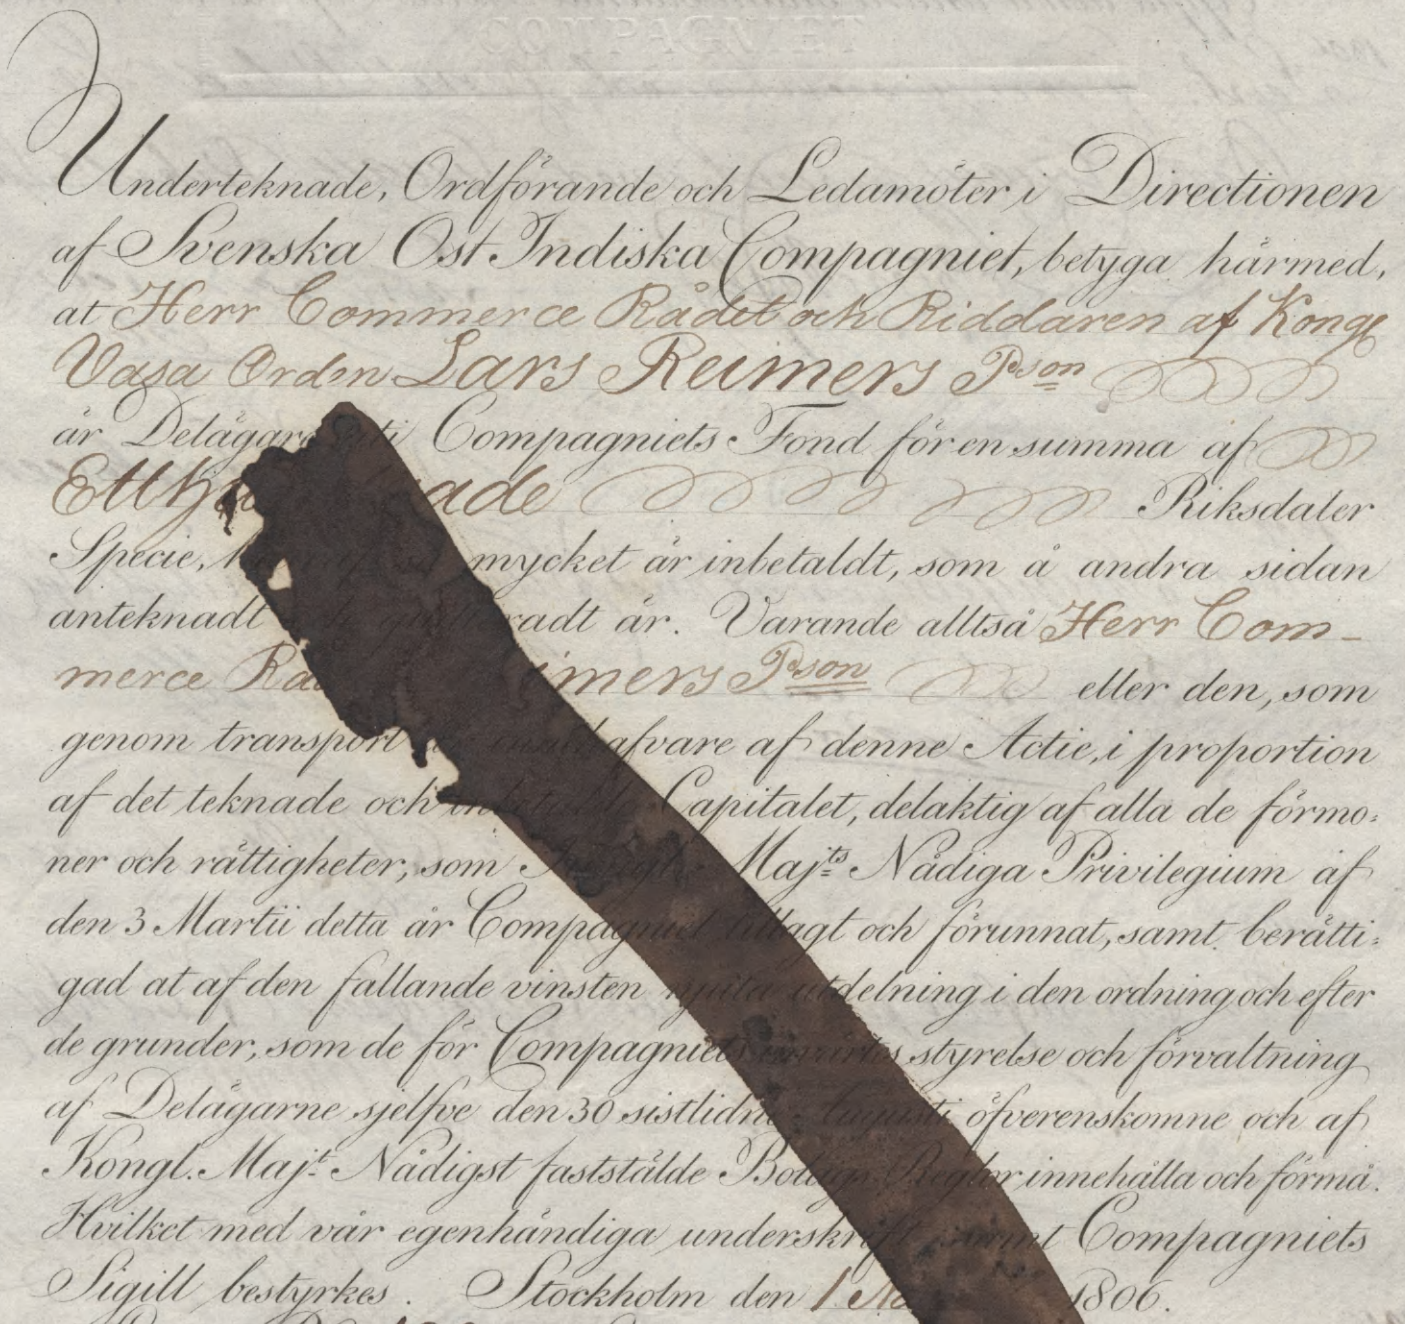 COMPAGNIET
Underteknade, Ordförande och Ledamöter, i Directionen
af Svenska Ost Indiska Compagniet, betyga härmed,
at Herr Commerce Rådet och Riddaren af Kongl
Vasa Orden Lars Reimers Pson
är Delägare uti Compagniets Fond för en summa af
Ett hade Riksdaler
Specie, mycket är inbetaldt, som å andra sidan
anteknadt radt är. Varande alltså Herr Com-
merce imers Pson eller den, som
genom transport afvare af denne Actie, i proportion
af det teknade och Capitalet, delaktig af alla de förmo-
ner och rättigheter, som Majts Nådiga Privilegium af
den 3 Martii detta år Compagniet tillagt och förunnat, samt berätti-
gad at af den fallande vinsten njuta utdelning i den ordning och efter
de grunder, som de för Compagniets styrelse och förvaltning
af Delägarne sjelfve den 30 sistlidne Augusti öfverenskomne och af
Kongl. Majt Nådigst faststälde Bolags Reglor innehålla och förmå.
Hvilket med vår egenhändiga underskrift samt Compagniets
Sigill bestyrkes. Stockholm den 1 1806.